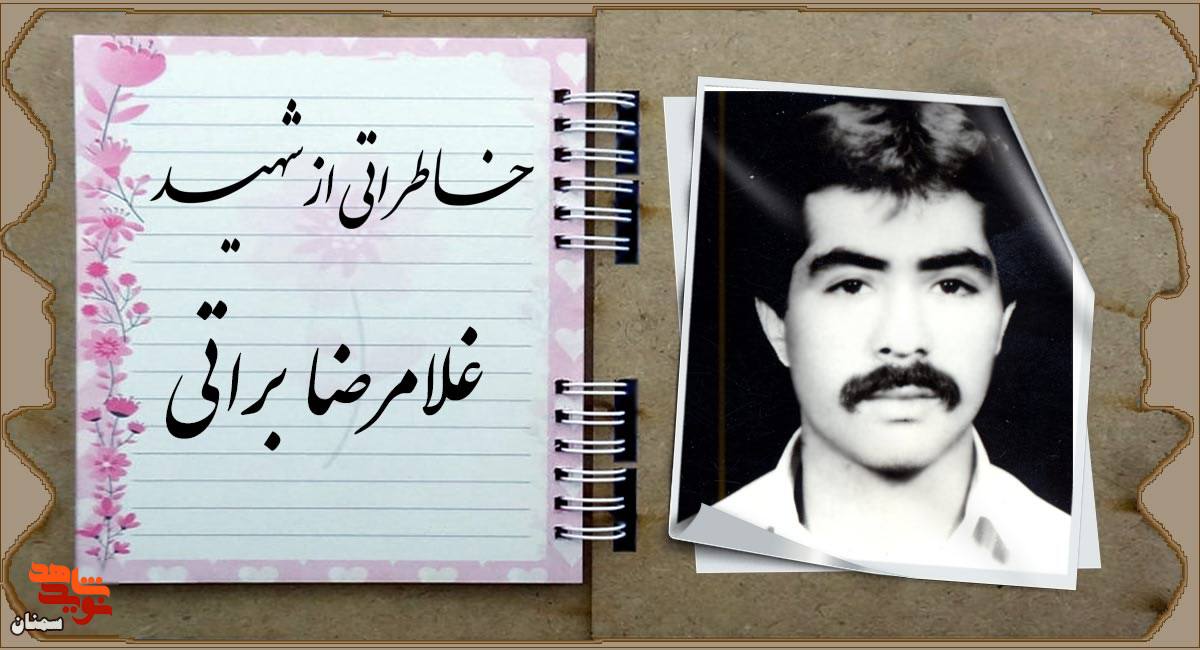 خاطراتی از شهید
غلامرضا براتی
نوید شاهد
سمنان